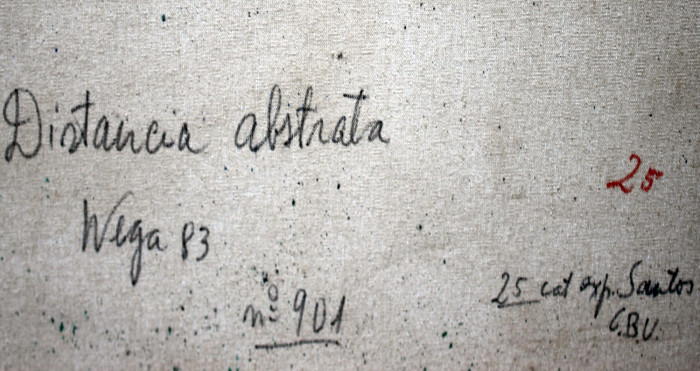 Distancia abstrata
25
Wega 83
nº 901
25 cat exp. Santos
C.B.U.